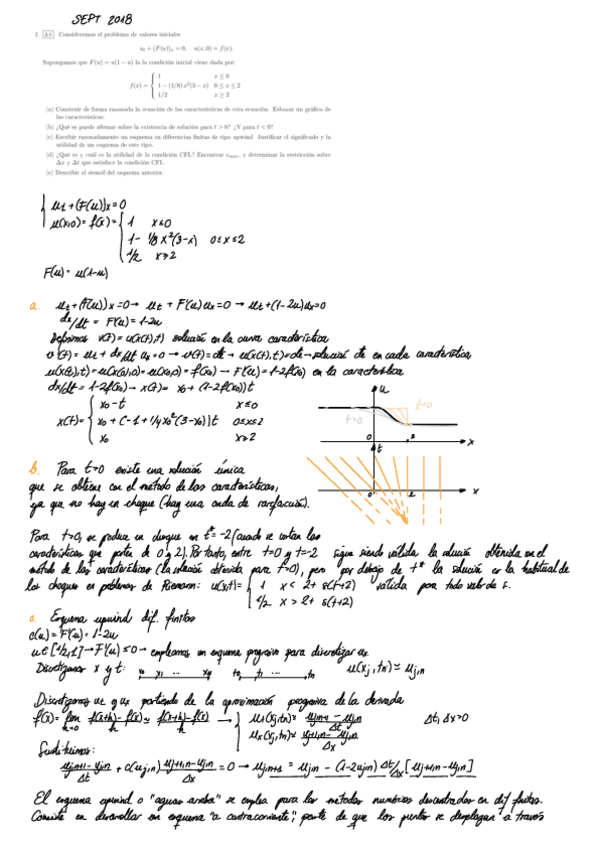 SEPT 2018
1. 3.0 Consideremos el problema de valores iniciales
u_t + (F(u))_x = 0, u(x, 0) = f(x).
Supongamos que F(u) = u(1 − u) la la condición inicial viene dada por:
f(x) = { 1 x ≤ 0
1 − (1/8) x²(3 − x) 0 ≤ x ≤ 2
1/2 x ≥ 2
(a) Construir de forma razonada la ecuación de las características de esta ecuación. Esbozar un gráfico de
las características.
(b) ¿Qué se puede afirmar sobre la existencia de solución para t > 0? ¿Y para t < 0?
(c) Escribir razonadamente un esquema en diferencias finitas de tipo upwind. Justificar el significado y la
utilidad de un esquema de este tipo.
(d) ¿Qué es y cuál es la utilidad de la condición CFL? Encontrar c_max, y determinar la restricción sobre
Δx y Δt que satisface la condición CFL.
(e) Describir el stencil del esquema anterior.
{ u_t + (F(u))_x = 0
u(x,0) = f(x) = { 1 x≤0
1 - 1/8 x²(3-x) 0≤x≤2
1/2 x≥2
F(u) = u(1-u)
a. u_t + (F(u))_x = 0 → u_t + F'(u) u_x = 0 → u_t + (1-2u) u_x = 0
dx/dt = F'(u) = 1-2u
Definimos v(t) = u(x(t),t) solución en la curva característica
v'(t) = u_t + dx/dt u_x = 0 → v(t) = cte → u(x(t),t) = cte → solución cte en cada característica
u(x(t),t) = u(x(0),0) = u(x0,0) = f(x0) → F'(u) = 1-2f(x0) en la característica
dx/dt = 1-2f(x0) → x(t) = x0 + (1-2f(x0))t
x(t) = { x0 - t x≤0
x0 + (-1 + 1/4 x0²(3-x0))t 0≤x≤2
x0 x≥2
u
t<0
t=0
0 2 x
t
0 2 x
b. Para t>0 existe una solución única
que se obtiene con el método de las características,
ya que no hay un choque (hay una onda de rarefacción).
Para t>0, se produce un choque en t* = -2 (cuando se cortan las
características que parten de 0 y 2). Por tanto, entre t=0 y t=-2 sigue siendo válida la solución obtenida en el
método de las características (la solución obtenida para t>0), pero por debajo de t* la solución es la habitual de
los choques en problemas de Riemann: u(x,t) = { 1 x < 2 + s(t+2) válida para todo valor de s.
1/2 x > 2 + s(t+2)
Esquema upwind dif. finitas
c(u) = F'(u) = 1-2u
u∈[1/2,1] → F'(u) ≤ 0 → empleamos un esquema progresivo para discretizar u_x
Discretizamos x y t: x0 x1 ... t0 t1 ... tn u(xj,tn) ≃ u_{j,n}
Discretizamos u_t y u_x partiendo de la aproximación progresiva de la derivada
f'(x) = lim h→0 f(x+h)-f(x)/h ≃ f(x+h)-f(x)/h → { u_t(xj,tn) ≈ u_{j,n+1} - u_{j,n}/Δt Δt, Δx > 0
u_x(xj,tn) ≈ u_{j+1,n} - u_{j,n}/Δx
Sustituimos:
u_{j,n+1} - u_{j,n}/Δt + c(u_{j,n}) u_{j+1,n} - u_{j,n}/Δx = 0 → u_{j,n+1} = u_{j,n} - (1-2u_{j,n}) Δt/Δx [u_{j+1,n} - u_{j,n}]
El esquema upwind o "aguas arriba" se emplea para los métodos numéricos descentrados en dif finitas.
Consiste en desarrollar un esquema "a contracorriente", parte de que los puntos se desplazan a través